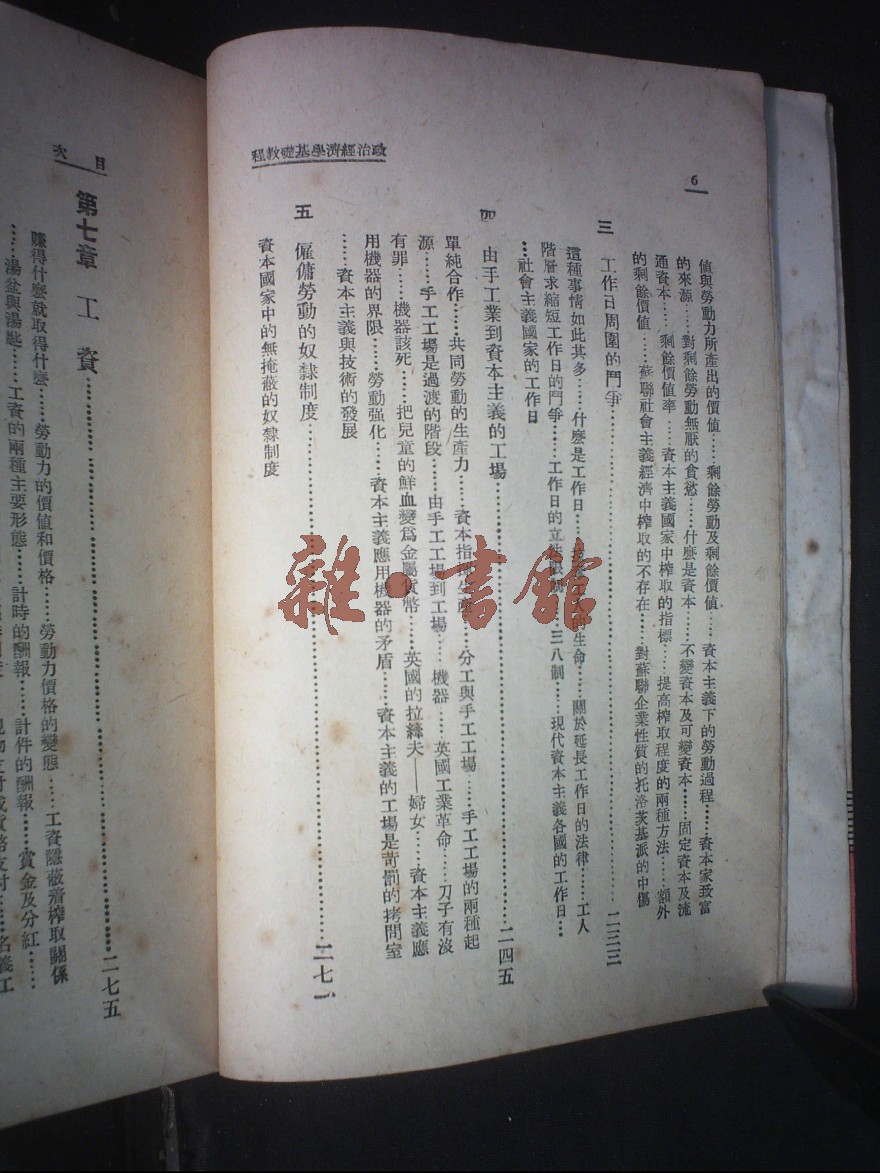 政治經濟學基礎教程
6
值與勞動力所產出的價值……剩餘勞動及剩餘價值……資本主義下的勞動過程……資本家致富
的來源……對剩餘勞動無厭的貪慾……什麼是資本……不變資本及可變資本……固定資本及流
通資本……剩餘價值率……資本主義國家中榨取的指標……提高榨取程度的兩種方法……額外
的剩餘價值……蘇聯社會主義經濟中榨取的不存在……對蘇聯企業性質的托洛茨基派的中傷
三 工作日周圍的鬥爭……二三三
這種事情如此其多……什麼是工作日……工人的生命……關於延長工作日的法律……工人
階層求縮短工作日的鬥爭……工作日的立法……三八制……現代資本主義各國的工作日……
…社會主義國家的工作日
四 由手工業到資本主義的工場……二四五
單純合作……共同勞動的生產力……資本指揮生產……分工與手工工場……手工工場的兩種起
源……手工工場是過渡的階段……由手工工場到工場……機器……英國工業革命……刀子有沒
有罪……機器該死……把兒童的鮮血變爲金屬貨幣……英國的拉縴夫——婦女……資本主義應
用機器的界限……勞動强化……資本主義應用機器的矛盾……資本主義的工場是苛罰的拷問室
……資本主義與技術的發展
五 僱傭勞動的奴隸制度……二七一
資本國家中的無掩蔽的奴隸制度
目次
第七章 工資……二七五
賺得什麼就取得什麼……勞動力的價值和價格……勞動力價格的變態……工資隱蔽着榨取關係
……湯盆與湯匙……工資的兩種主要形態……計時的酬報……計件的酬報……賞金及分紅……
支付或貨幣支付……名義工
雜·書館